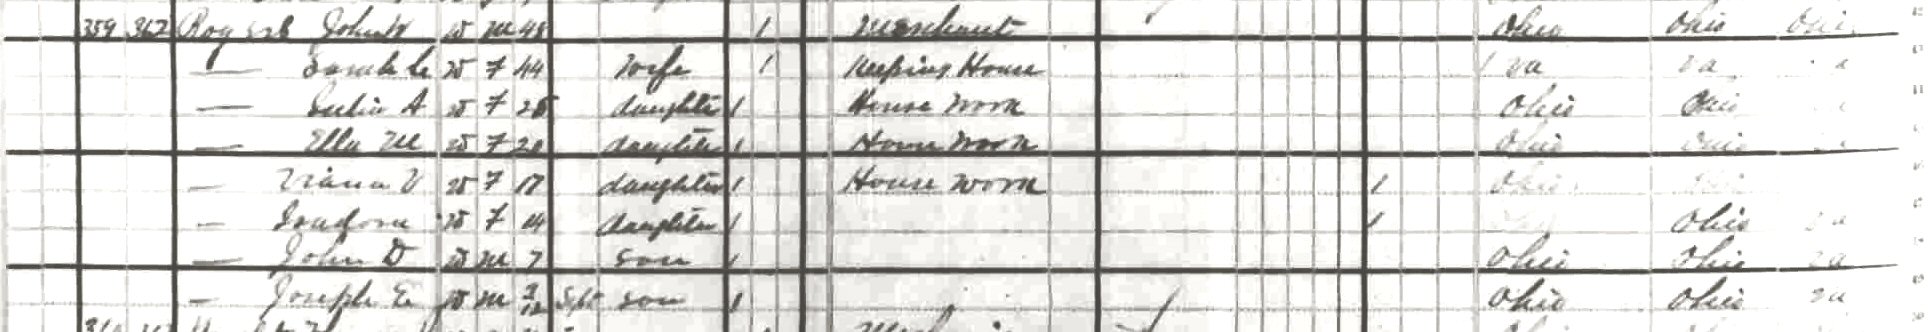 359 362 John W W M 48 1 Merchant Ohio Ohio Ohio
— Sarah C W F 44 Wife 1 Keeping House Va Va
— A W F 25 daughter 1 House Work Ohio Ohio
— Ella M W F 20 daughter 1 House Work Ohio Ohio
— V W F 17 daughter 1 House Work 1 Ohio
— Isadora W F 14 daughter 1 1 Ohio Va
— John D W M 7 son 1 Ohio Ohio Va
— Joseph E W M /12 Sept son 1 Ohio Ohio Va